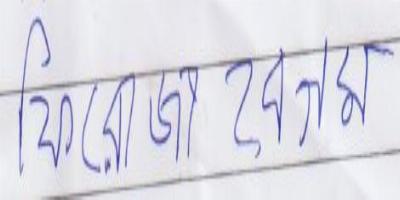 ফিরোজা বেগম